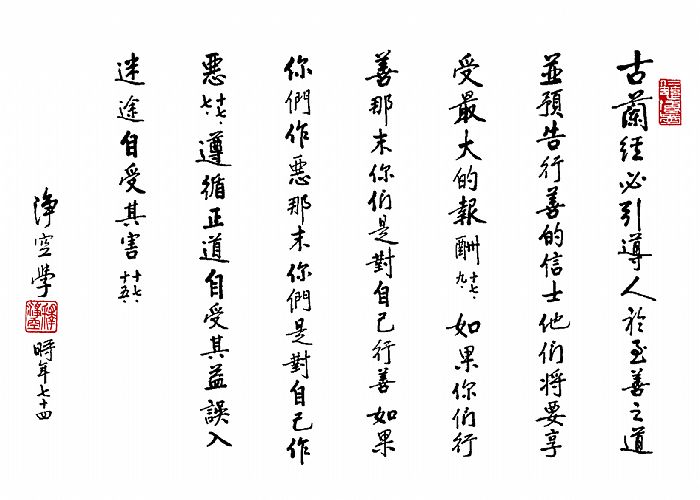 古蘭經必引導人於至善之道
並預告行善的信士他們將要享
受最大的報酬十七、九、如果你们行
善那末你们是對自己行善如果
你們作惡那末你們是對自己作
惡十七、七、遵循正道自受其益誤入
迷途自受其害十七、十五、
淨空學時年七十四